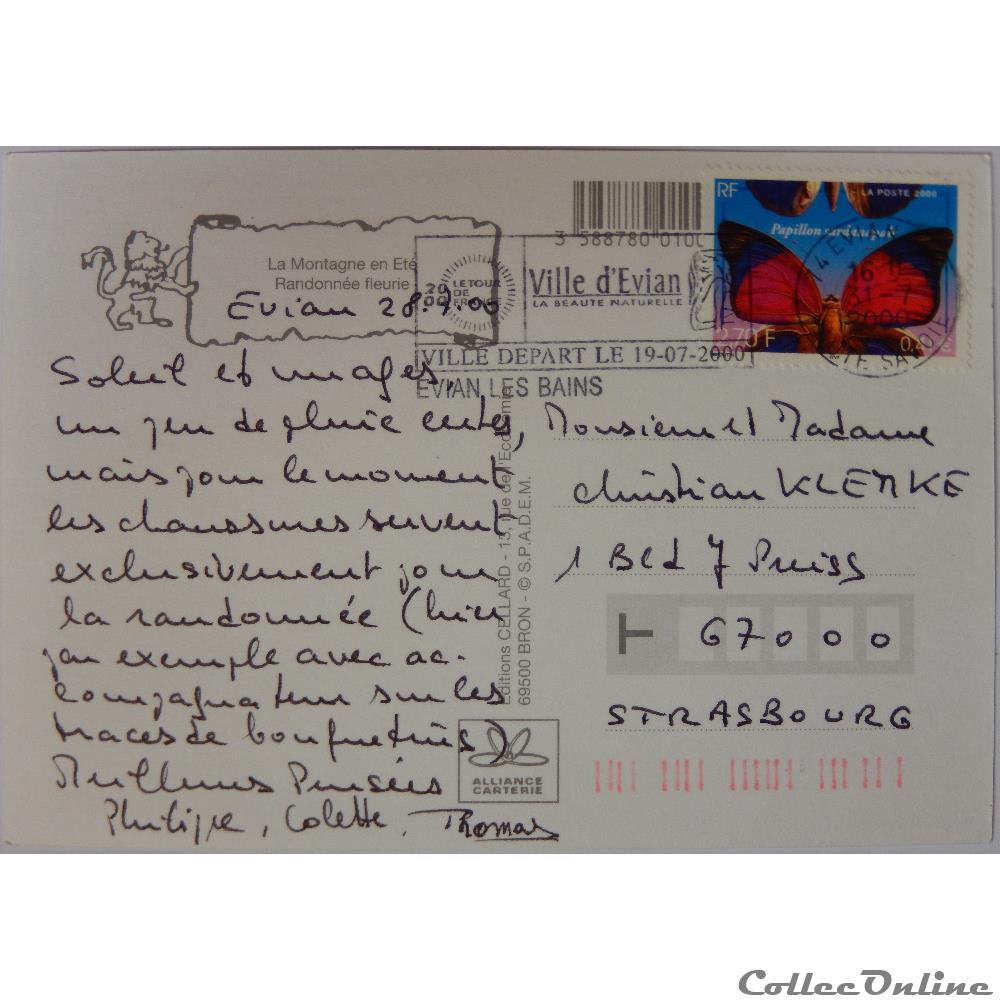 La Montagne en Eté
Randonnée fleurie
Evian 28.7.00
Soleil et nuages,
un peu de pluie certes,
mais pour le moment
les chaussures servent
exclusivement pour
la randonnée (hier
par exemple avec ac-
compagnateur sur les
traces de bouquetins)
Meilleures Pensées
Philippe, Colette, Thomas
3 588780 0100
2000
LE TOUR
DE
FRANCE
Ville d'Evian
LA BEAUTE NATURELLE
VILLE DEPART LE 19-07-2000
EVIAN LES BAINS
RF
LA POSTE 2000
Papillon sardanapale
2,70 F
0,41
16 H
31-7
2000
HTE SAVOIE
Editions CELLARD - 13, rue de l'Economie
69500 BRON - © S.P.A.D.E.M.
Monsieur et Madame
Christian KLEMKE
1 Bld J Preiss
67000
STRASBOURG
ALLIANCE
CARTERIE
CollecOnline